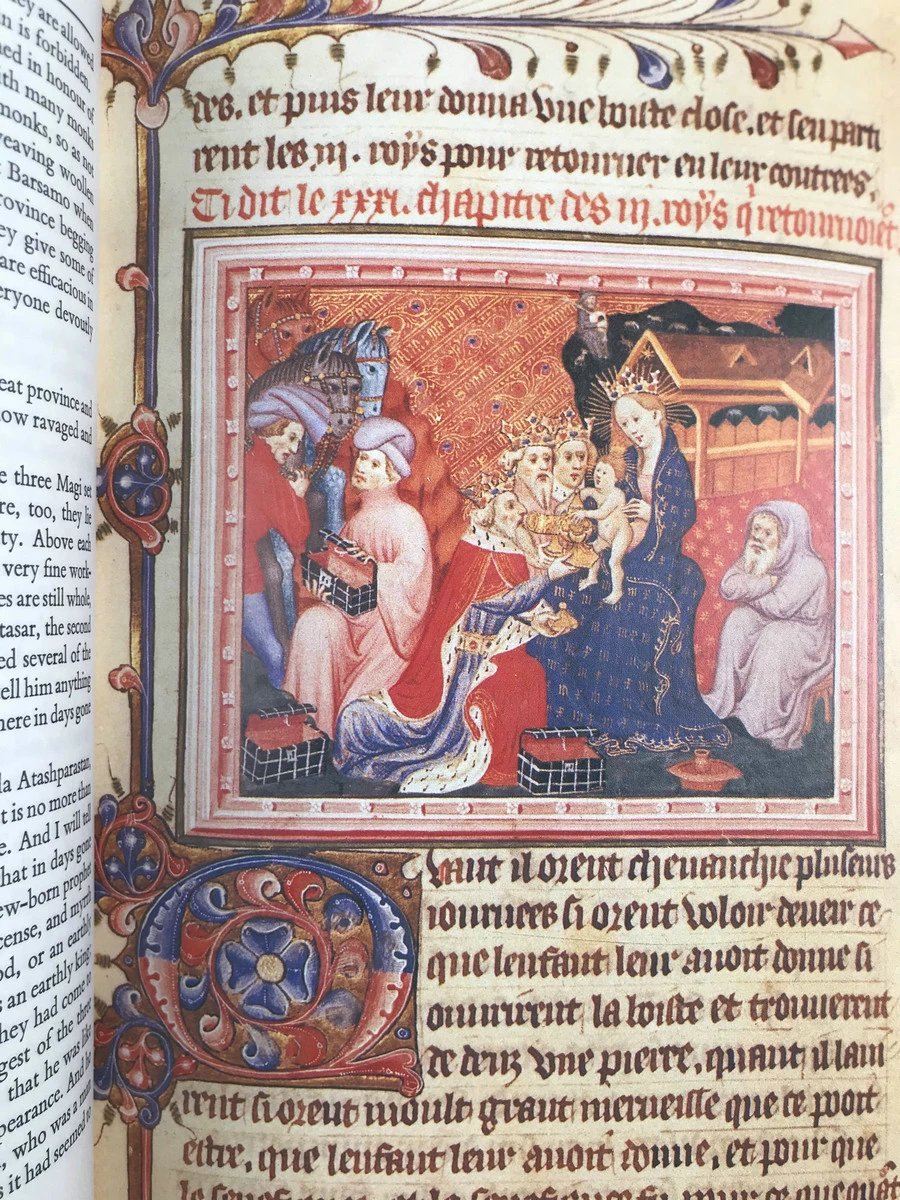 ey are allowed
n is forbidden
ned in honour of
ith many monks
monks, so as not
weaving woollen
Barsamo when
rovince begging
ey give some of
are efficacious in
eryone devoutly
eat province and
ow ravaged and
e three Magi set
re, too, they lie
ty. Above each
very fine work-
es are still whole,
tasar, the second
ed several of the
ell him anything
here in days gone
la Atashparastan,
t is no more than
e. And I will tell
hat in days gone
ew-born prophet
cense, and myrrh
od, or an earthly
s an earthly king;
hey had come to
gest of the three
that he was like
pearance. And he
, who was a man
s it had seemed to
des. et puis leur donna vne boiste close. et sen parti
rent les iij. roys pour retourner en leur contrees.
Ci dit le xxxi. chapitre des iij. roys q̃ retournoiẽt
Quant il orent cheuauchie pluseurs
iournees si orent voloir de veir ce
que lenfant leur auoit donne si
ouurirent la boiste et trouuerent
de denz vne pierre. quant il lam
rent si orent moult grant merueille que ce pooit
estre. que lenfant leur auoit donne. et pour que